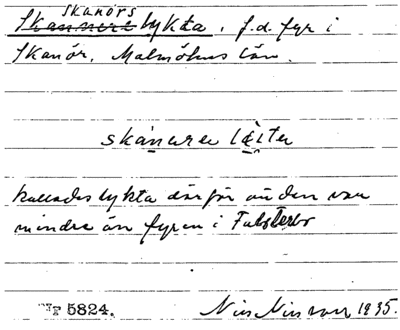 Skanörs
Skanners lykta, f.d. fyr i
Skanör, Malmöhus län.
skánuren lèitu
kallades lykta därför att den var
mindre än fyren i Falsterbo
Nr 5824. Nils Nilsson 1935.